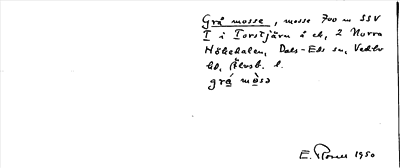 Grå mosse, mosse 700 m SSV
T i Torstjärn å ek, 2 Norra
Hökedalen, Dals-Eds sn, Vedbo
hd, Älvsb. l.
grå mòsə
E. 1950